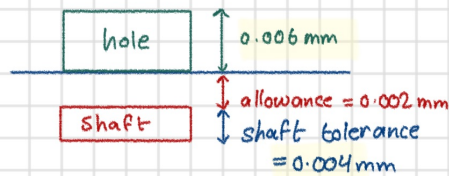 hole
0.006 mm
allowance = 0.002 mm
shaft
shaft tolerance
= 0.004mm